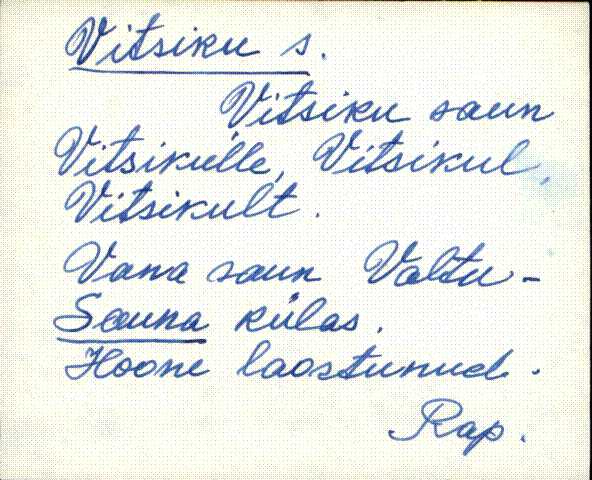 Vitsiku s.
Vitsiku saun
Vitsikulle, Vitsikul,
Vitsikult.
Vana saun Valtu-
Seauna külas.
Hoone laostunud.
Rap.